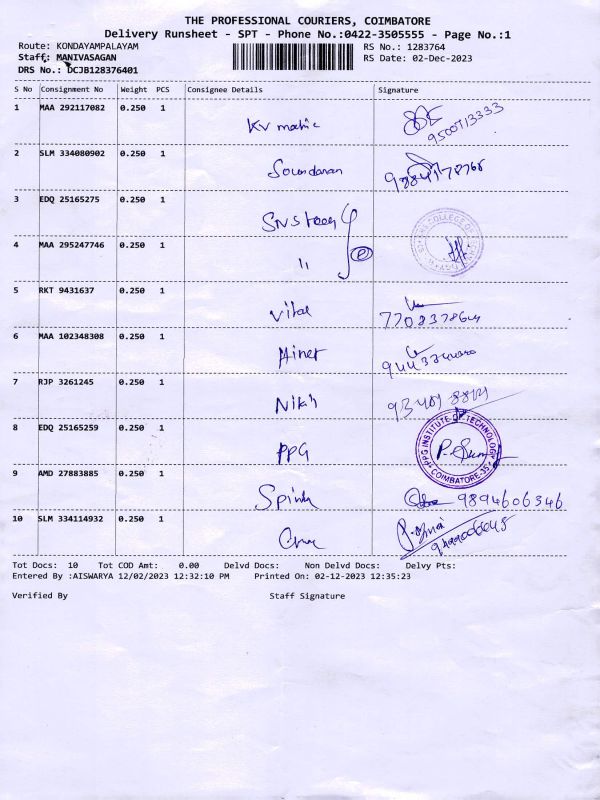 THE PROFESSIONAL COURIERS, COIMBATORE
Delivery Runsheet - SPT - Phone No.:0422-3505555 - Page No.:1
Route: KONDAYAMPALAYAM RS No.: 1283764
Staff: MANIVASAGAN RS Date: 02-Dec-2023
DRS No.: DCJB128376401
S No Consignment No Weight PCS Consignee Details Signature
1 MAA 292117082 0.250 1
9500713333
2 SLM 334080902 0.250 1
Soundaran
3 EDQ 25165275 0.250 1
4 MAA 295247746 0.250 1
11
5 RKT 9431637 0.250 1
Vital
6 MAA 102348308 0.250 1
7 RJP 3261245 0.250 1
8 EDQ 25165259 0.250 1
PPG
PPG INSTITUTE OF TECHNOLOGY
COIMBATORE-35
9 AMD 27883885 0.250 1
9894606346
10 SLM 334114932 0.250 1
Tot Docs: 10 Tot COD Amt: 0.00 Delvd Docs: Non Delvd Docs: Delvy Pts:
Entered By :AISWARYA 12/02/2023 12:32:10 PM Printed On: 02-12-2023 12:35:23
Verified By Staff Signature